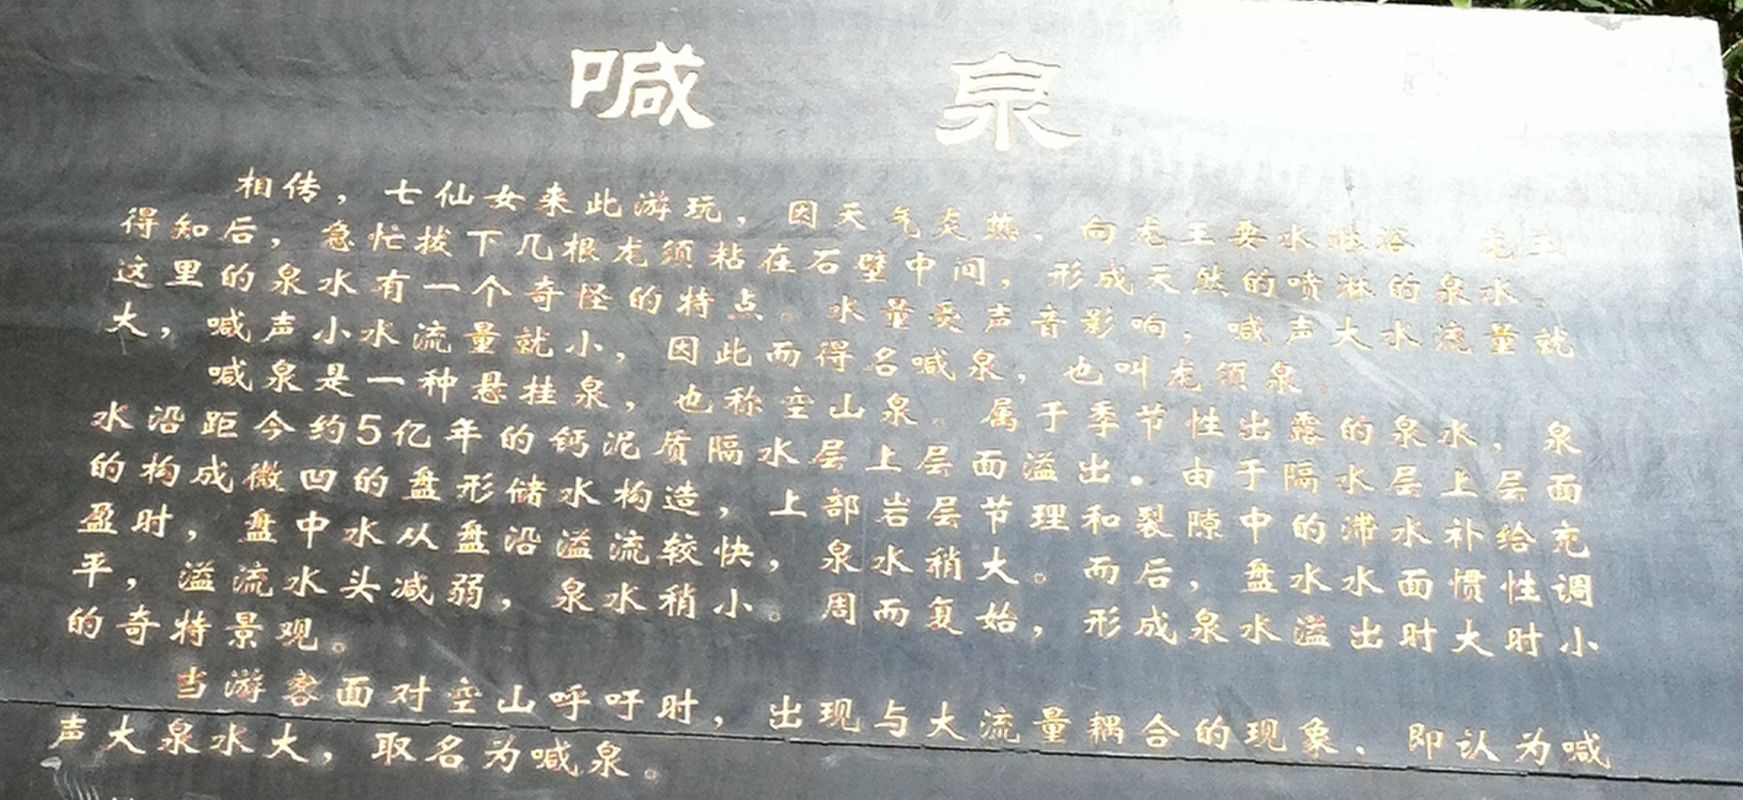 喊 泉
相传，七仙女来此游玩，因天气炎热，向龙王要水淋浴，龙王
得知后，急忙拔下几根龙须粘在石壁中间，形成天然的喷淋的泉水。
这里的泉水有一个奇怪的特点。水量受声音影响，喊声大水流量就
大，喊声小水流量就小，因此而得名喊泉，也叫龙须泉。
喊泉是一种悬挂泉，也称空山泉。属于季节性出露的泉水，泉
水沿距今约5亿年的钙泥质隔水层上层面溢出。由于隔水层上层面
的构成微凹的盘形储水构造，上部岩层节理和裂隙中的滞水补给充
盈时，盘中水从盘沿溢流较快，泉水稍大。而后，盘水水面惯性调
平，溢流水头减弱，泉水稍小。周而复始，形成泉水溢出时大时小
的奇特景观。
当游客面对空山呼吁时，出现与大流量耦合的现象、即认为喊
声大泉水大，取名为喊泉。